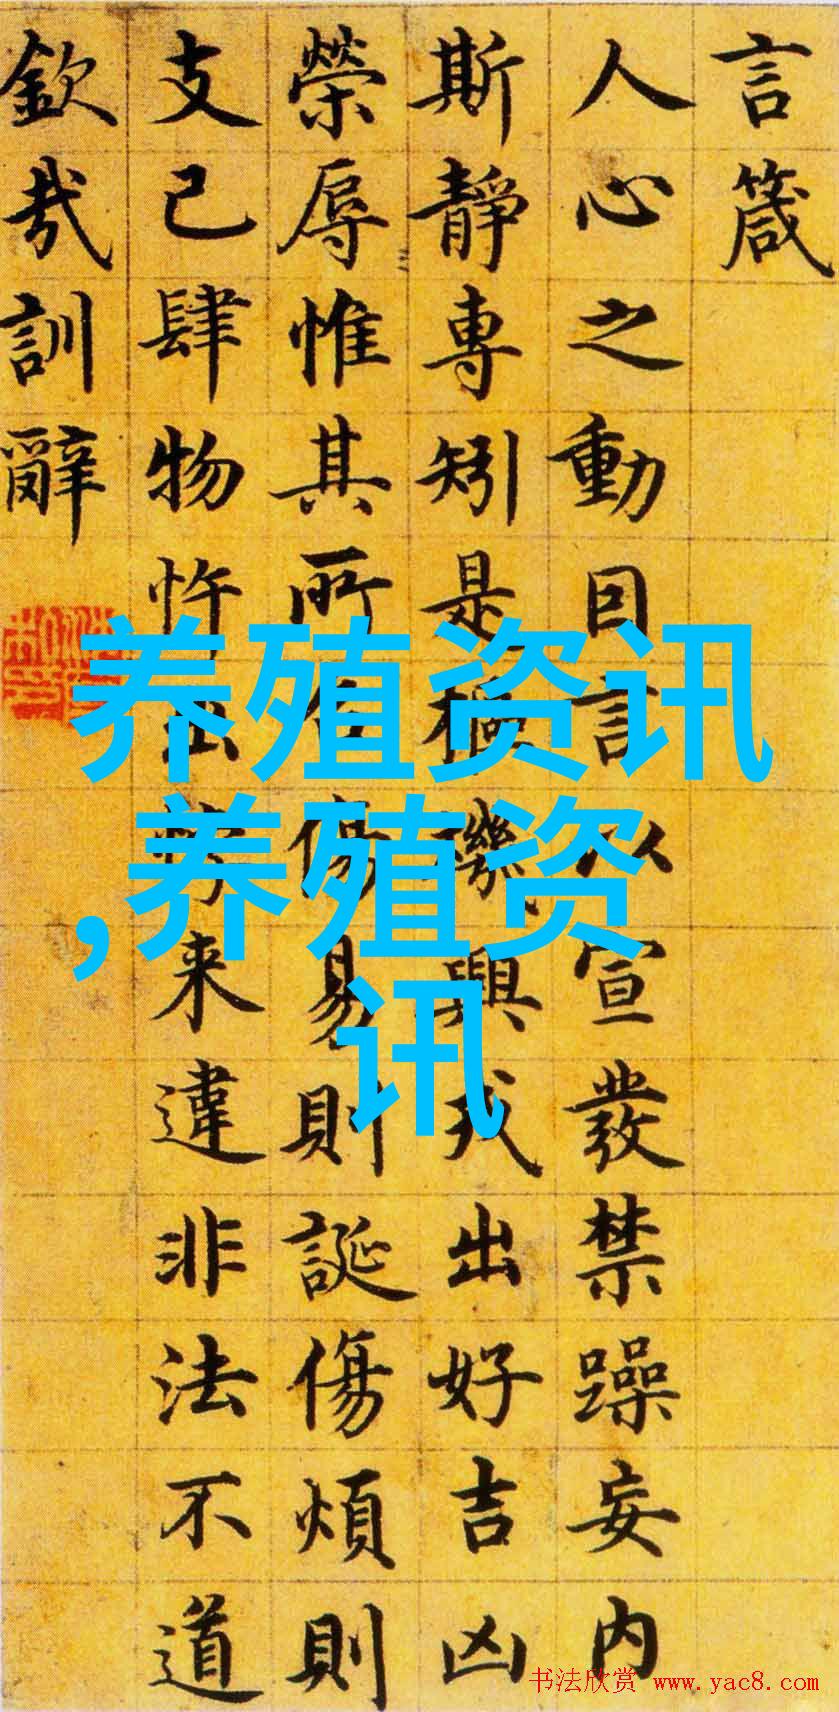 言箴
人心之動因言以宣發禁躁妄内
斯靜專矧是樞機興戎出好吉凶
榮辱惟其所召傷易則誕傷煩則
支己肆物忤出悖来違非法不道
欽哉訓辭
养殖资讯
,养殖资
讯
书法欣赏 www.yac8.com